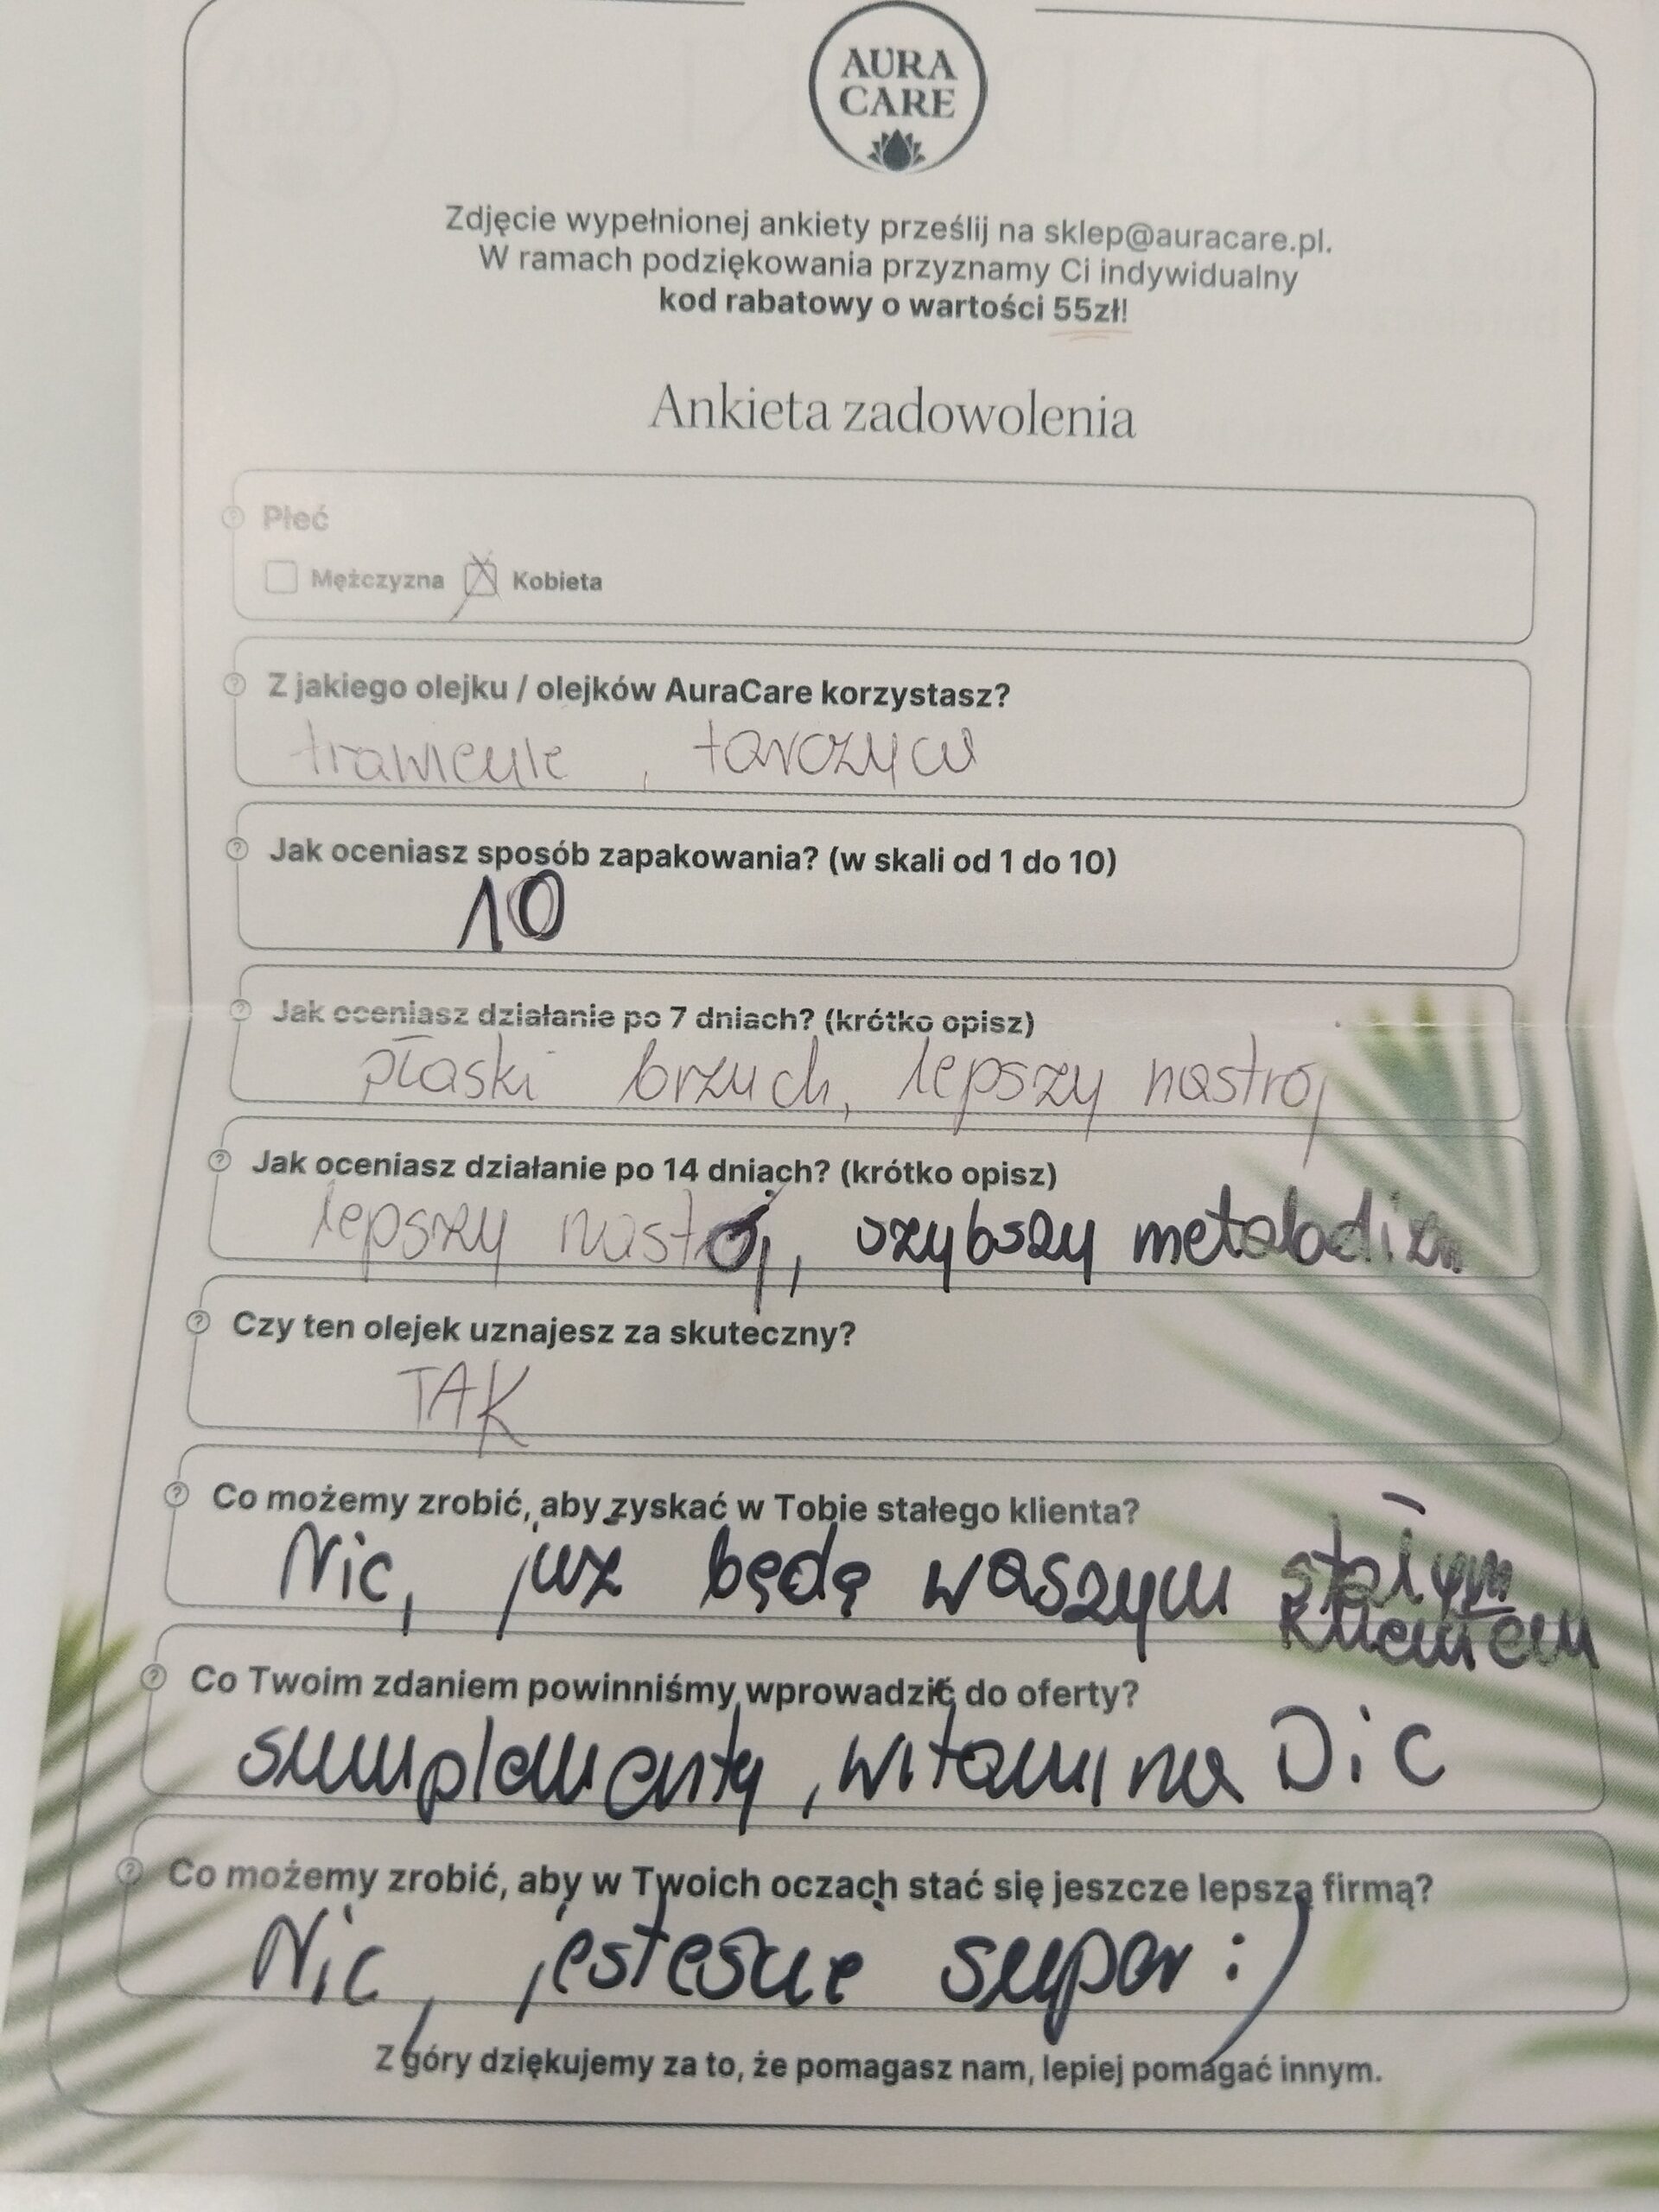 AURA
CARE
Zdjęcie wypełnionej ankiety prześlij na sklep@auracare.pl.
W ramach podziękowania przyznamy Ci indywidualny
kod rabatowy o wartości 55zł!
Ankieta zadowolenia
Płeć
Mężczyzna Kobieta
Z jakiego olejku / olejków AuraCare korzystasz?
trawienie, tarczyca
Jak oceniasz sposób zapakowania? (w skali od 1 do 10)
10
Jak oceniasz działanie po 7 dniach? (krótko opisz)
płaski brzuch, lepszy nastrój
Jak oceniasz działanie po 14 dniach? (krótko opisz)
lepszy nastój, szybszy metabolizm
Czy ten olejek uznajesz za skuteczny?
TAK
Co możemy zrobić, aby zyskać w Tobie stałego klienta?
Nic, już będę waszym stałym
klientem
Co Twoim zdaniem powinniśmy wprowadzić do oferty?
sumplementy, witamina D i C
Co możemy zrobić, aby w Twoich oczach stać się jeszcze lepszą firmą?
Nic, jesteście super :)
Z góry dziękujemy za to, że pomagasz nam, lepiej pomagać innym.